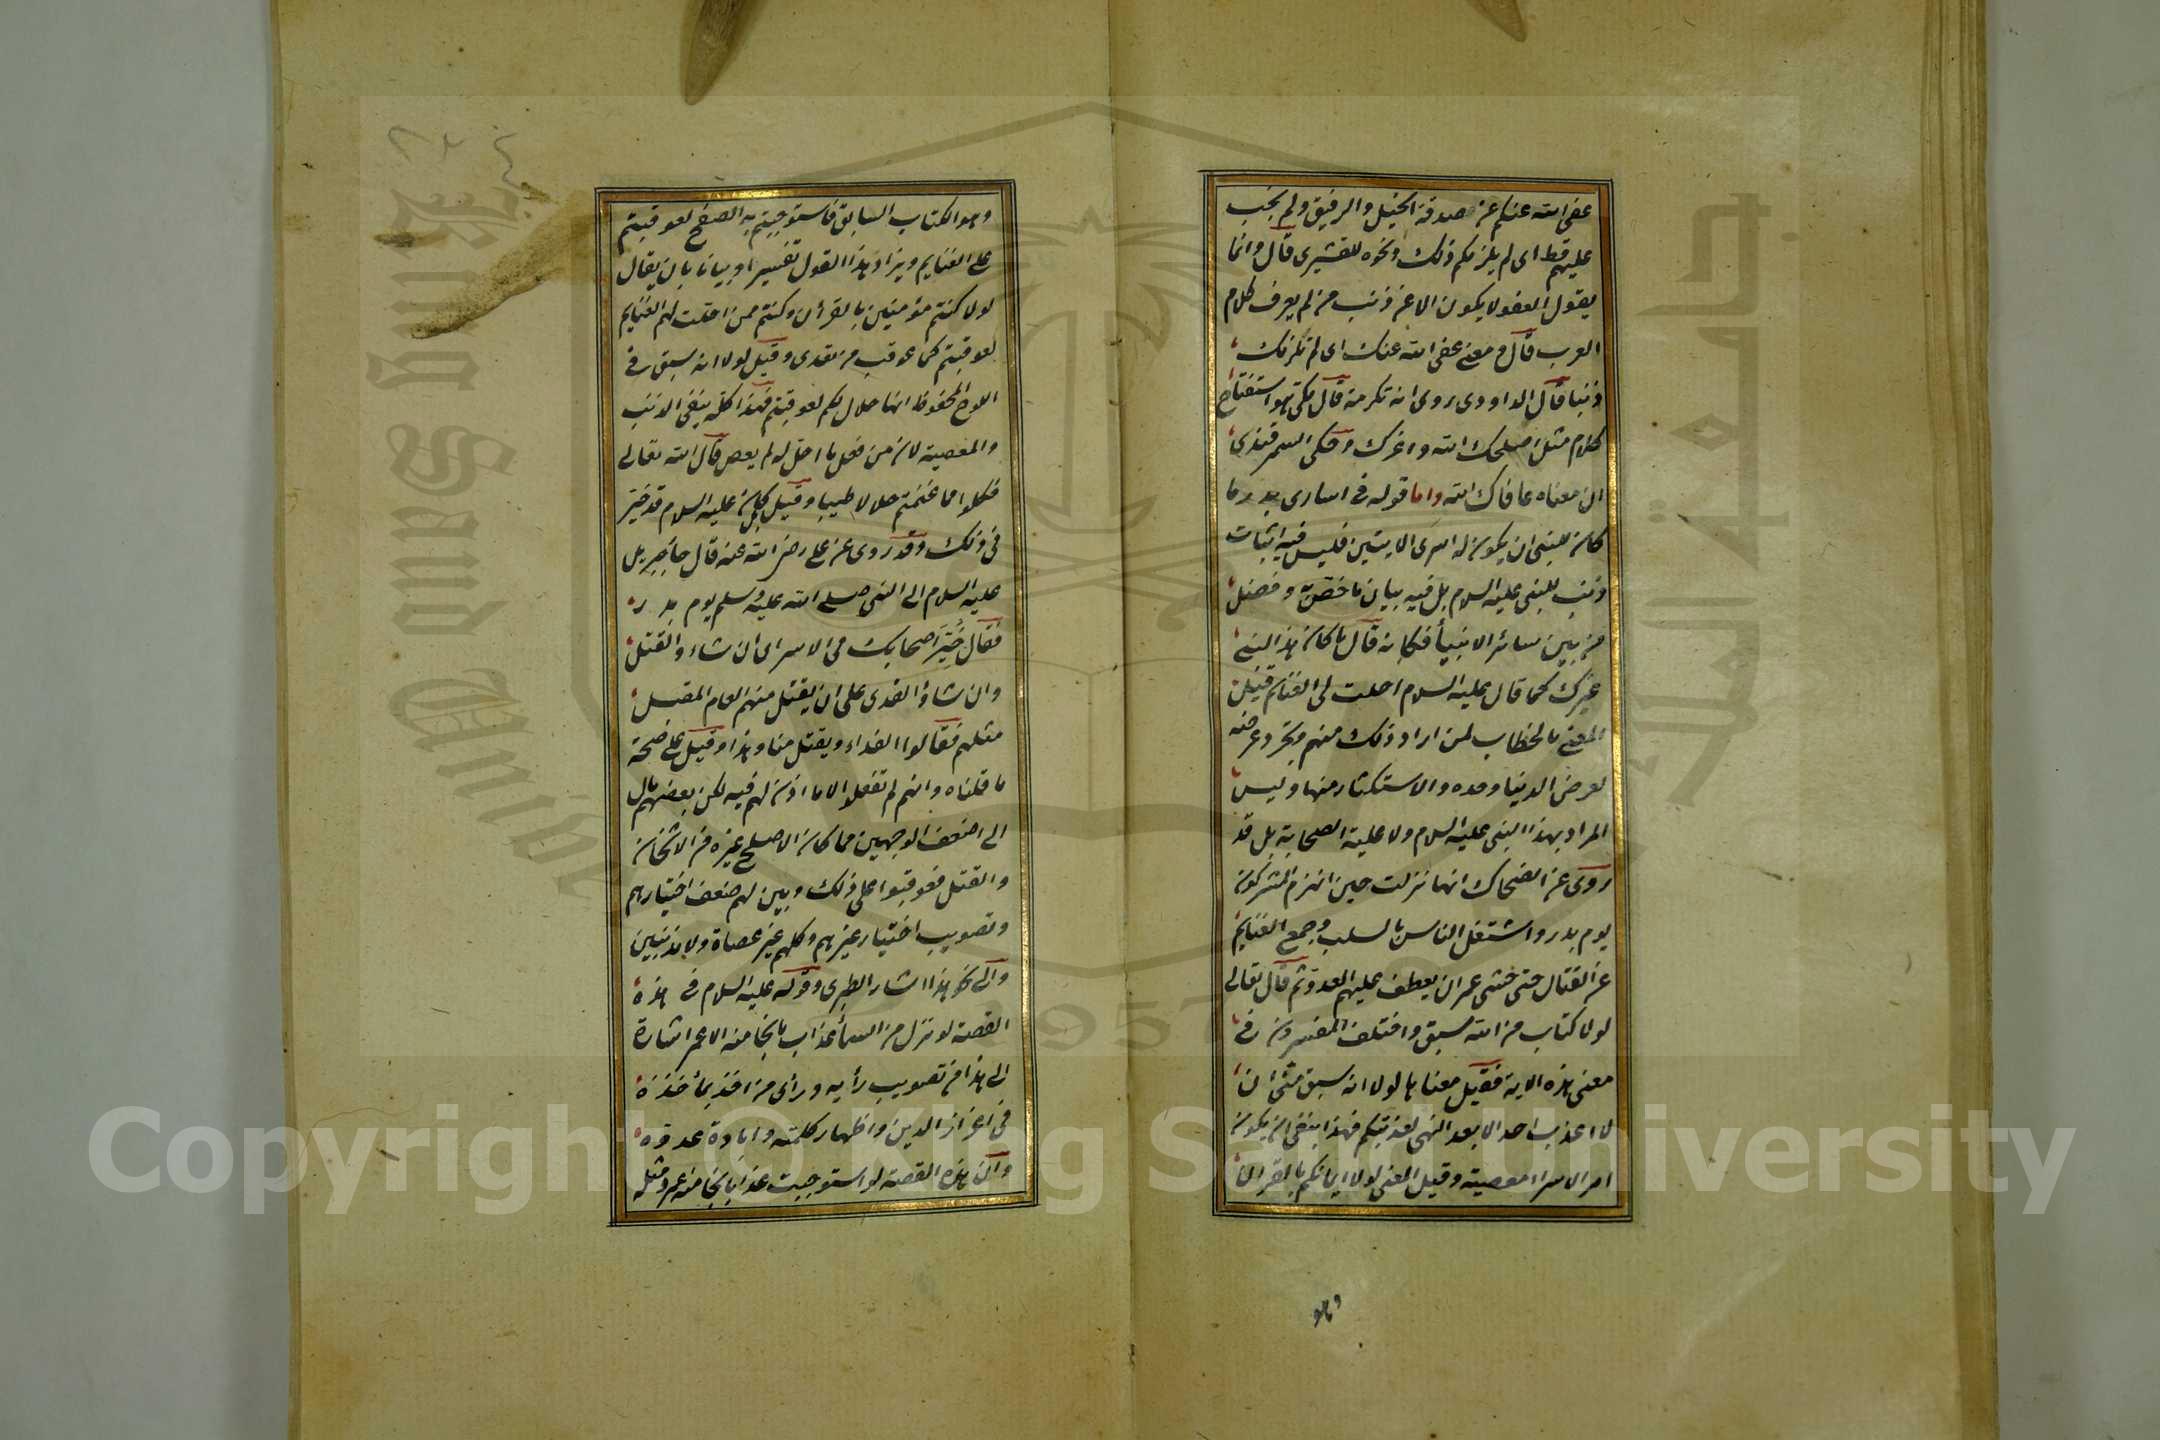 عفى الله عنكم عن صدقة الخيل والرقيق ولم يجب
عليهم قط اى لم يلزمكم ذلك ونحوه للقشيرى قال وانما
يقول العفو لا يكون الا عن ذنب من لم يعرف كلام
العرب قال ومعنى عفى الله عنك اى لم تلزمك
ذنبا قال الداوودى روى انه تكرمة قال مكى هو استفتاح
كلام مثل اصلحك الله واعزك وحكى السمرقندى
ان معناه عافاك الله واما قوله فى اسارى بدر وما
كان للنبى ان يكون له اسرى الايتين فليس فيه اثبات
ذنب للنبى عليه السلام بل فيه بيان ما خص به وفضل
من بين سائر الانبيأ فكانه قال ما كان هذا لنبى
غيرك كما قال عليه السلام احلت لى الغنائم قيل
المعنى بالخطاب لمن اراد ذلك منهم وتجرد غرضه
لعرض الدنيا وحده والاستكثار منها وليس
المراد بهذا النبى عليه السلام ولا علية الصحابة بل قد
روى عن الضحاك انها نزلت حين انهزم المشركون
يوم بدر واشتغل الناس بالسلب وجمع الغنايم
عن القتال حتى خشى عمر ان يعطف عليهم العدو ثم قال تعالى
لولا كتاب من الله سبق واختلف المفسرون فى
معنى هذه الاية فقيل معناها لولا انه سبق منى ان
لا اعذب احد الا بعد النهى لعذبتكم فهذا ينفى ان يكون
امر الاسرا معصية وقيل المعنى لولا ايمانكم بالقران
وهو
وهو الكتاب السابق فاستوجبتم به الصفح لعوقبتم
على الغنايم ويزاد هذا القول تفسيرا وبيانا بان يقال
لولا كنتم مؤمنين بالقرأن وكنتم ممن احلت لهم الغنايم
لعوقبتم كما عوقب من تعدى وقيل لولا انه سبق فى
اللوح المحفوظ انها حلال لكم لعوقبتم فهذا كله ينفى الذنب
والمعصية لان من فعل ما احل له لم يعص قال الله تعالى
فكلوا مما غنمتم حلالا طيبا وقيل بل كان عليه السلام قد خير
فى ذلك وقد روى عن على رضى الله عنه قال جأ جبريل
عليه السلام الى النبى صلى الله عليه وسلم يوم بدر
فقال خير اصحابك فى الاسرى ان شاء والقتل
وان شاؤا الفدى على ان يقتل منهم العام المقبل
مثلهم فقالوا الفداء ويقتل منا وهذا دليل على صحة
ما قلناه وانهم لم تفعلوا الا ما اذن لهم فيه لكن بعضهم مال
الى اضعف الوجهين مما كان الاصلح غيره من الاثخان
والقتل فعوقبوا على ذلك وبين لهم ضعف اختيارهم
وتصويب اختيار غيرهم وكلهم غير عصاة ولا مذنبين
والى نحو هذا اشار الطبرى وقوله عليه السلام فى هذه
القصة لو نزل من السمأ عذاب ما نجا منه الا عمر اشارة
الى هذا من تصويب رأيه ورأى من اخذ بمأخذه
فى اعزاز الدين واظهار كلمته وابادة عدوه
وان هذه القصة لو استوجبت عذابا نجا منه عمر ومثله
Copyright © King Saud University
King Saud University
جامعة الملك
1957